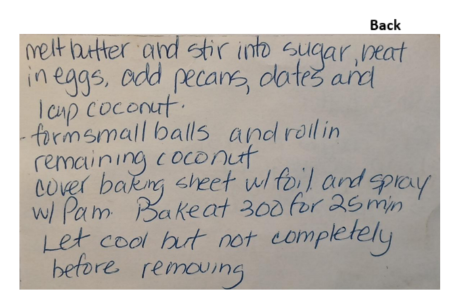 Back
melt butter and stir into sugar, beat
in eggs, add pecans, dates and
1 cup coconut.
- form small balls and roll in
remaining coconut
cover baking sheet w/ foil and spray
w/ Pam. Bake at 300 for 25 min
Let cool but not completely
before removing